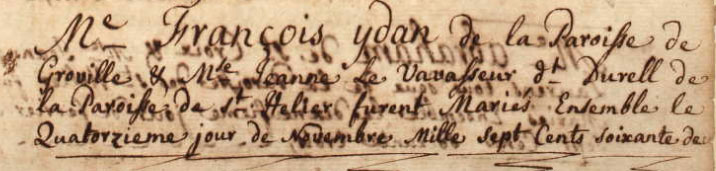 Mr François ydan de la Paroisse de
Groville & Mlle Jeanne Le Vavasseur dt Durell de
la Paroisse de st Helier furent Mariés Ensemble le
Quatorzieme jour de Novembre Mille Sept Cents soixante de